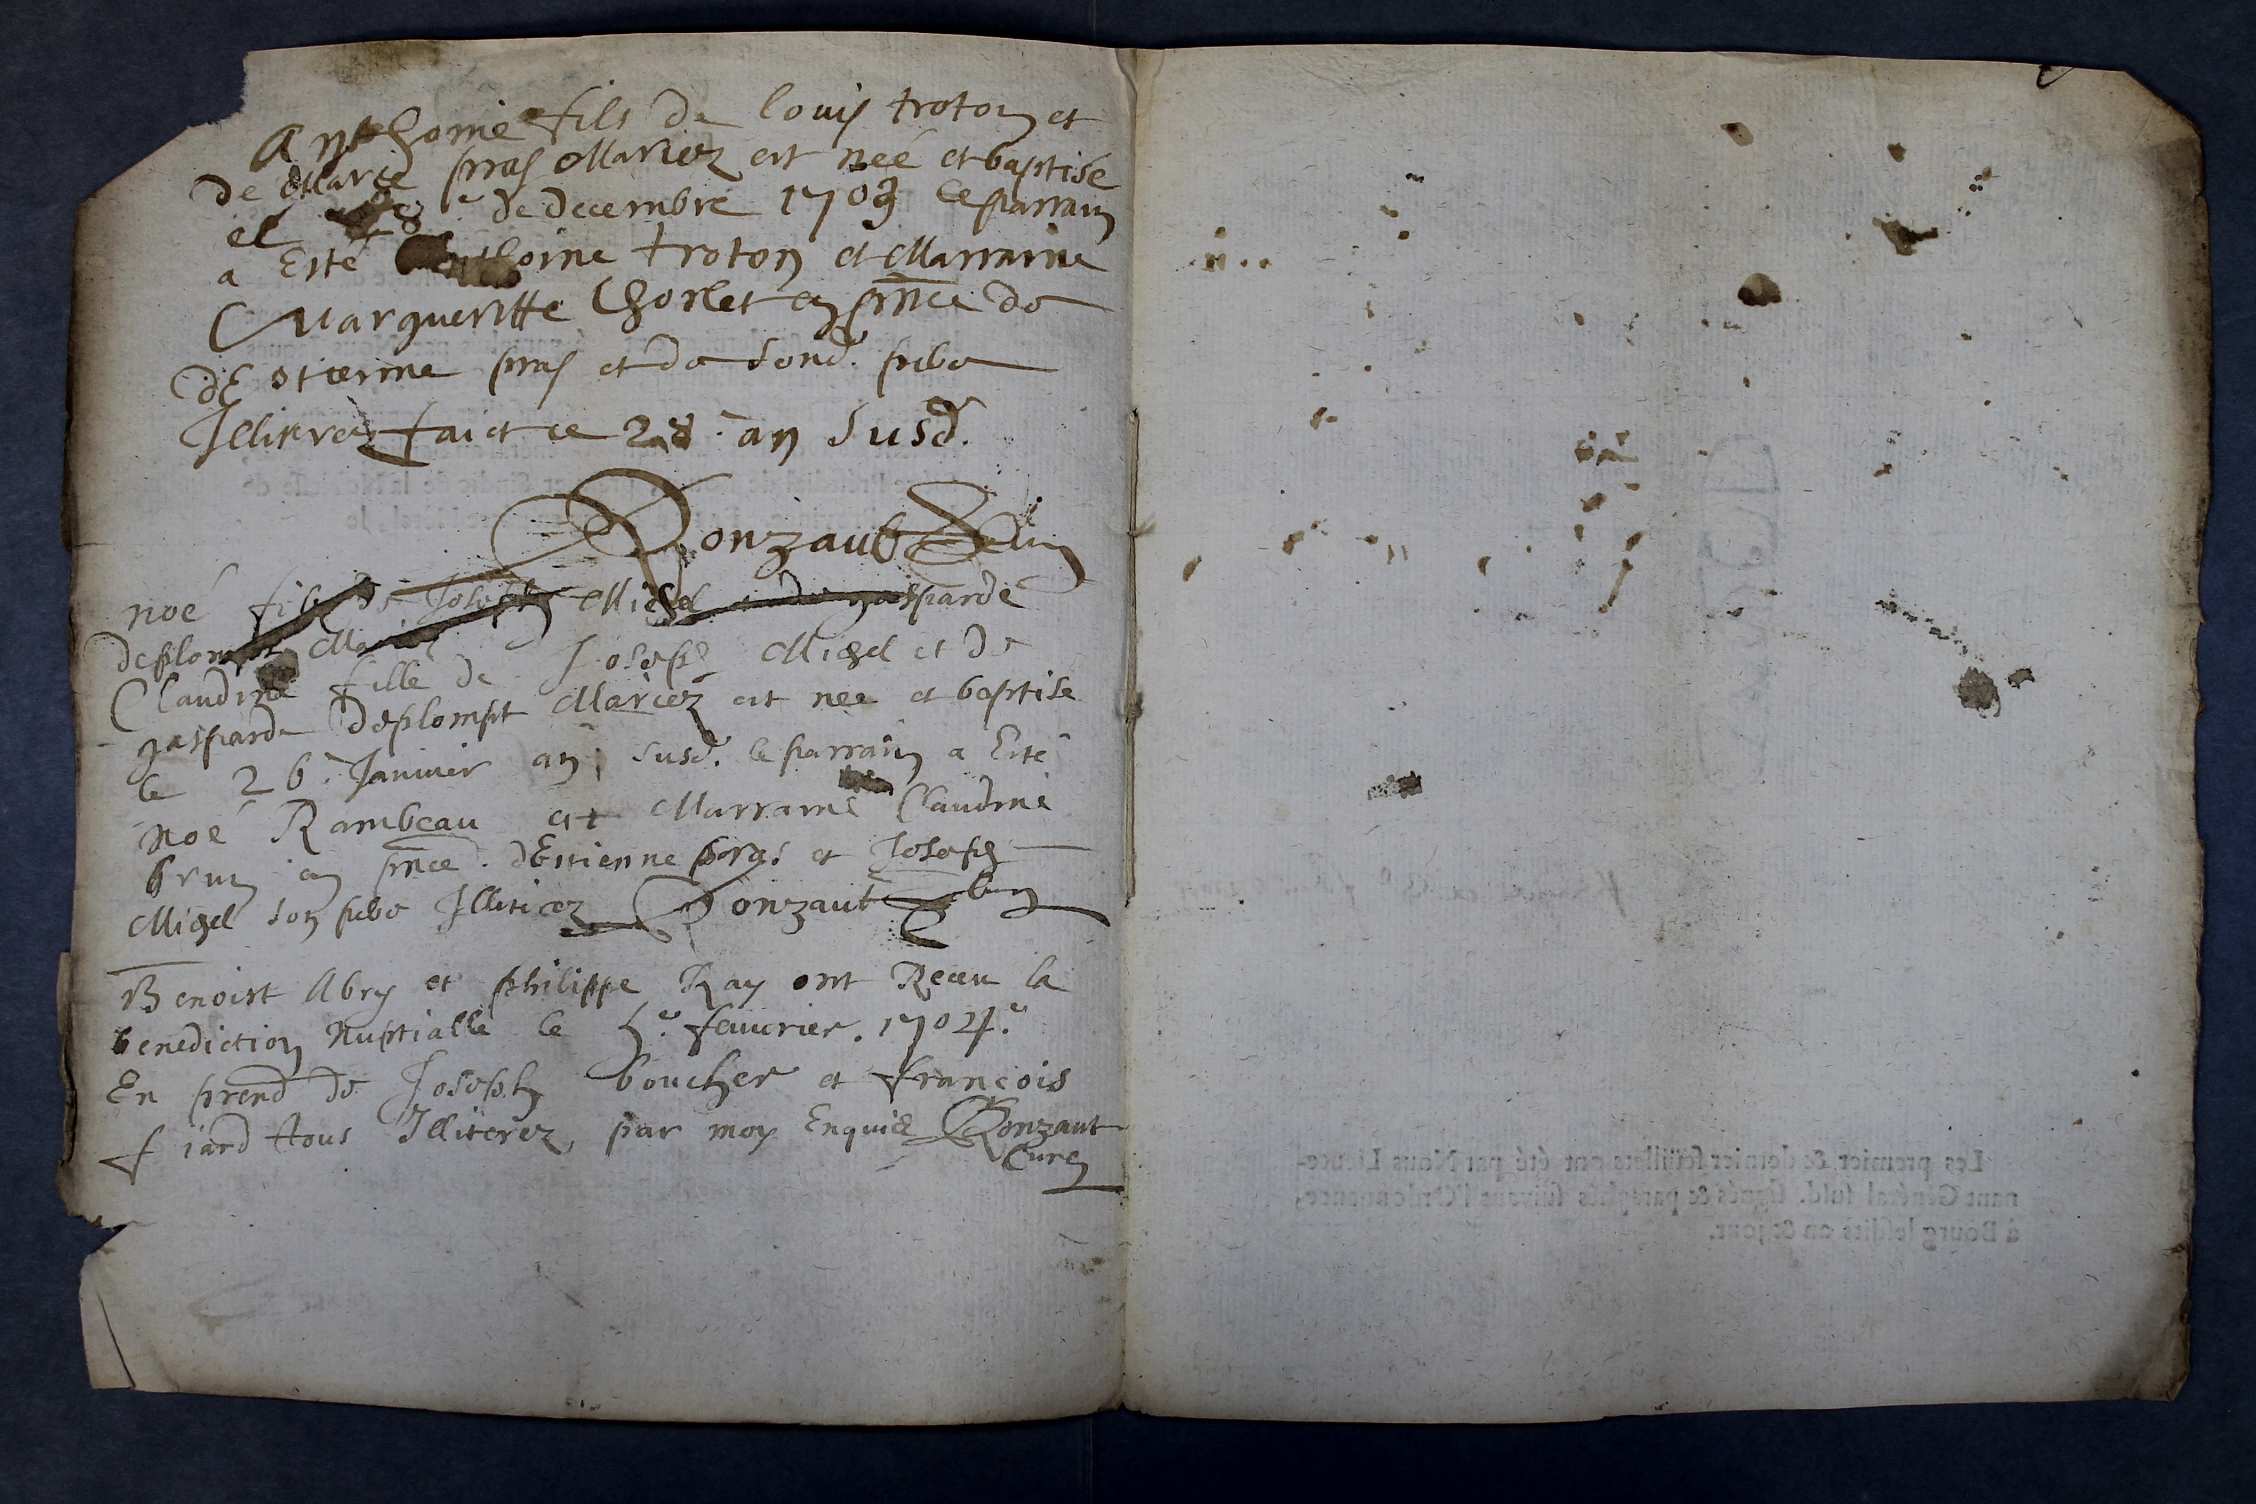 Anthoine fils de louis troton et
de Marie pras Mariez est neé et baptisé
el 28.e de decembre 1703 le parrain
a Esté Anthoine troton et Marraine
Margueritte Chorlet en pnce de
dEstienne pras et de Sond. pibe
Illiterez faict ce 28. an Susd.
Ronzault
noé fils de Joseph Michel et de gasparde
deplompt Mariez
Claudine fille de Joseph Michel et de
gasparde deplompt Mariez est nee et baptise
le 26. Janvier an susd. le parrain a Esté
Noé Rambeau et Marraine Claudine
brun en pnce. dEstienne et Joseph
Michel son pibe Illiterez Ronzaut
Benoist Abry et philippe Ray ont Receu la
benediction Nuptialle le 5.e feuurier. 1704.e
En prend de Joseph boucher et francois
fiard tous Illiterez, par moy Enquis Ronzaut
Curé
Les premier & dernier feüillets ont été par Nous Lieute-
nant Général susd. signés & paraphés suivant l'Ordonnance,
à Bourg lesdits an & jour.